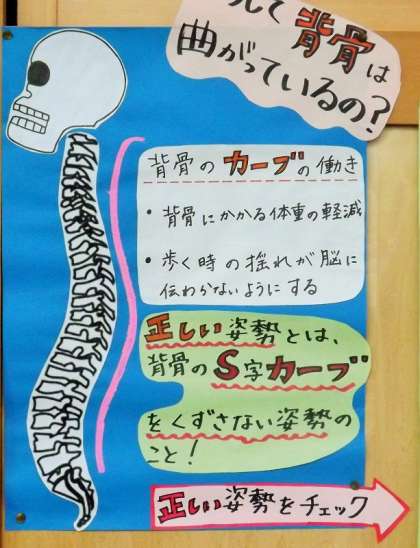 して背骨は
曲がっているの?
背骨のカーブの働き
・背骨にかかる体重の軽減
・歩く時の揺れが脳に
伝わらないようにする
正しい姿勢とは、
背骨のS字カーブ
をくずさない姿勢の
こと!
正しい姿勢をチェック